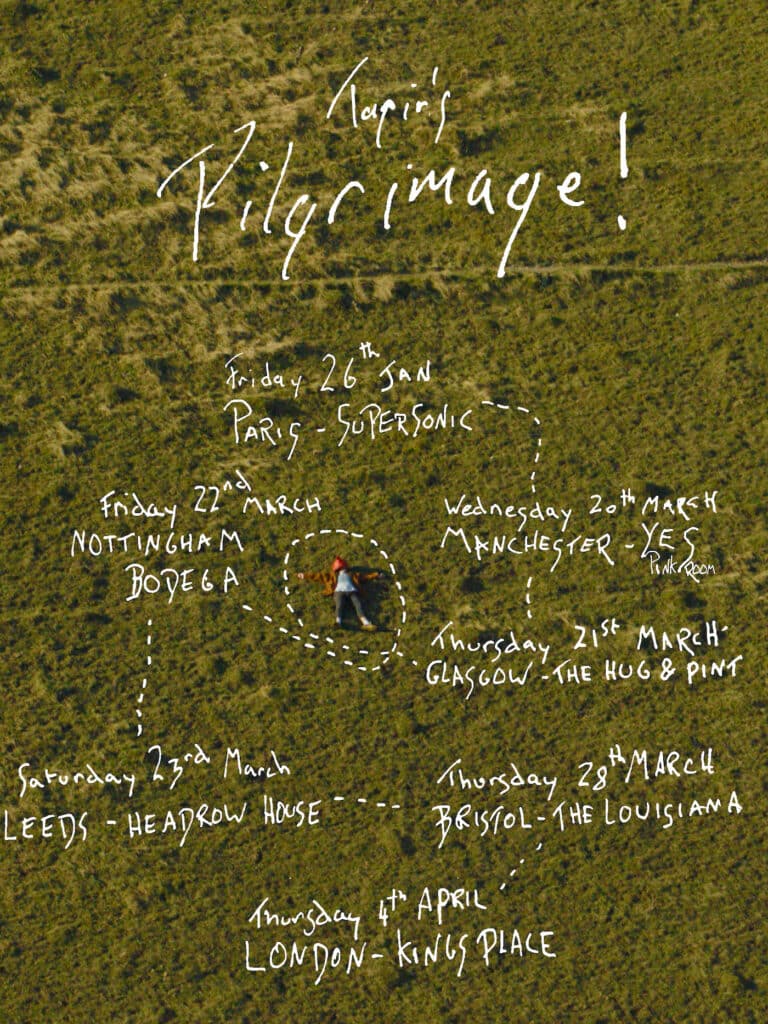 Tapir's
Pilgrimage!
Friday 26th JAN
PARIS - SUPERSONIC
Friday 22nd MARCH
NOTTINGHAM
BODEGA
Wednesday 20th MARCH
MANCHESTER - YES
PINK ROOM
Thursday 21st MARCH
GLASGOW - THE HUG & PINT
Saturday 23rd March
LEEDS - HEADROW HOUSE
Thursday 28th MARCH
BRISTOL - THE LOUISIANA
Thursday 4th APRIL
LONDON - KINGS PLACE